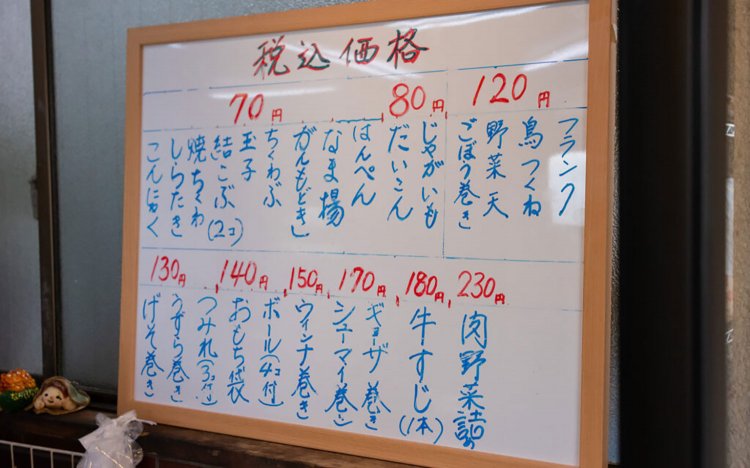 税込価格
120円
フランク
鳥つくね
野菜天
ごぼう巻き
80円
じゃがいも
だいこん
はんぺん
なま揚
70円
がんもどき
ちくわぶ
玉子
結こぶ(2コ)
焼ちくわ
しらたき
こんにゃく
230円
肉野菜詰
180円
牛すじ(1本)
170円
ギョーザ巻き
シューマイ巻き
150円
ウィンナ巻き
140円
ボール(4コ付)
おもち袋
つみれ(3コ付)
130円
うずら巻き
げそ巻き